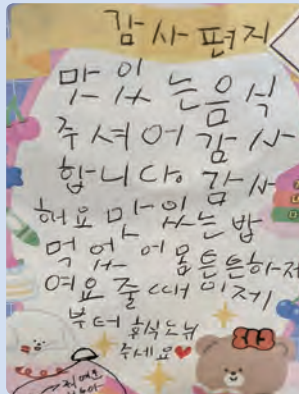 감사편지
맛있는음식
주셔어감사
합니다. 감사
해요 맛있는밥
먹었어 몸튼튼하저
여요 줄때 이제
부터 휴식도뉘
주세요❤